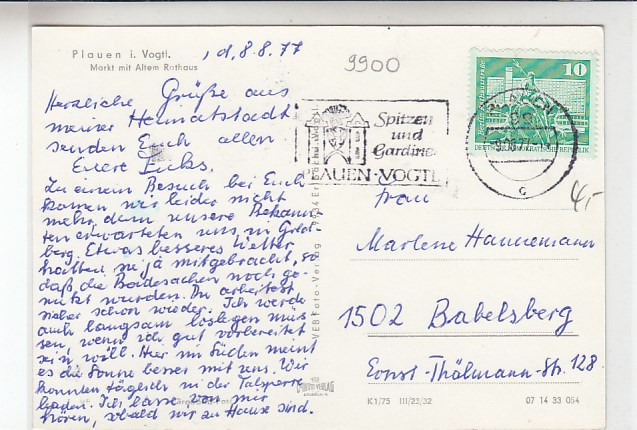 Plauen i. Vogtl.
Markt mit Altem Rathaus
, d. 8.8.77
Herzliche Grüße aus
meiner Heimatstadt
senden Euch allen
Eure Fuchs.
Zu einem Besuch bei Euch
kamen wir leider nicht
mehr, denn unsere Bekann-
ten erwarteten uns in
berg. Etwas besseres Wetter
hatten ja mitgebracht, so
daß die Badesachen noch ge-
nutzt wurden. Du arbeitest
sicher schon wieder. Ich werde
auch langsam loslegen müs
sen, wenn ich gut vorbereitet
sein will. Hier im Süden meint
es die Sonne besser mit uns. Wir
konnten täglich in der Talsperre
baden. Ich lasse von mir
hören, sobald wir zu Hause sind.
VEB Foto-Verlag
9900
Spitzen
und
Gardinen
PLAUEN · VOGTL
10
PLAUEN
c
4,-
Frau
Marlene Hannemann
1502 Babelsberg
Ernst-Thälmann-Str. 128
K1/75 III/23/32
07 14 33 064